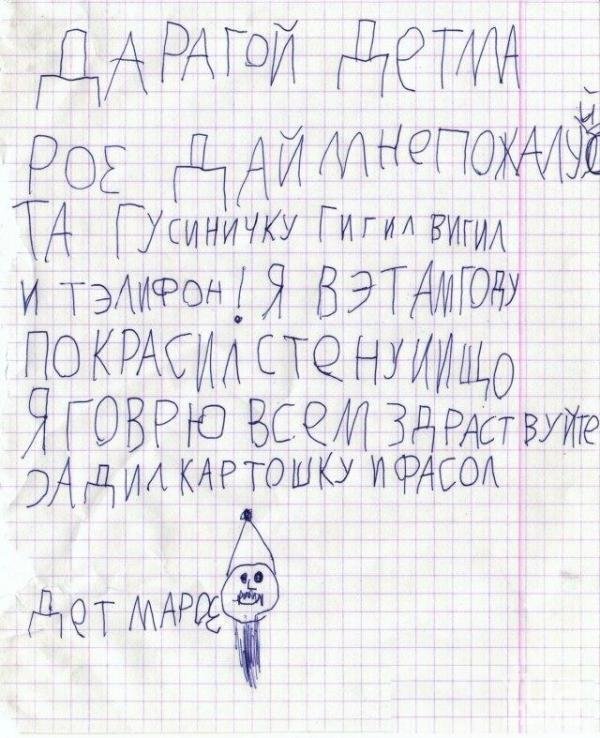 ДАРАГОЙ ДЕТМА
РОЗ ДАЙ МНЕПОЖАЛУЙ
ТА ГУСИНИЧКУ ГИГИЛ ВИГИЛ
И ТЭЛИФОН! Я В ЭТАМГОДУ
ПОКРАСИЛ СТЕНУ И ИЩО
Я ГОВРЮ ВСЕМ ЗДРАСТВУЙТЕ
ЭАДИЛ КАРТОШКУ И ФАСОЛ
ДЕТ МАРОЗ